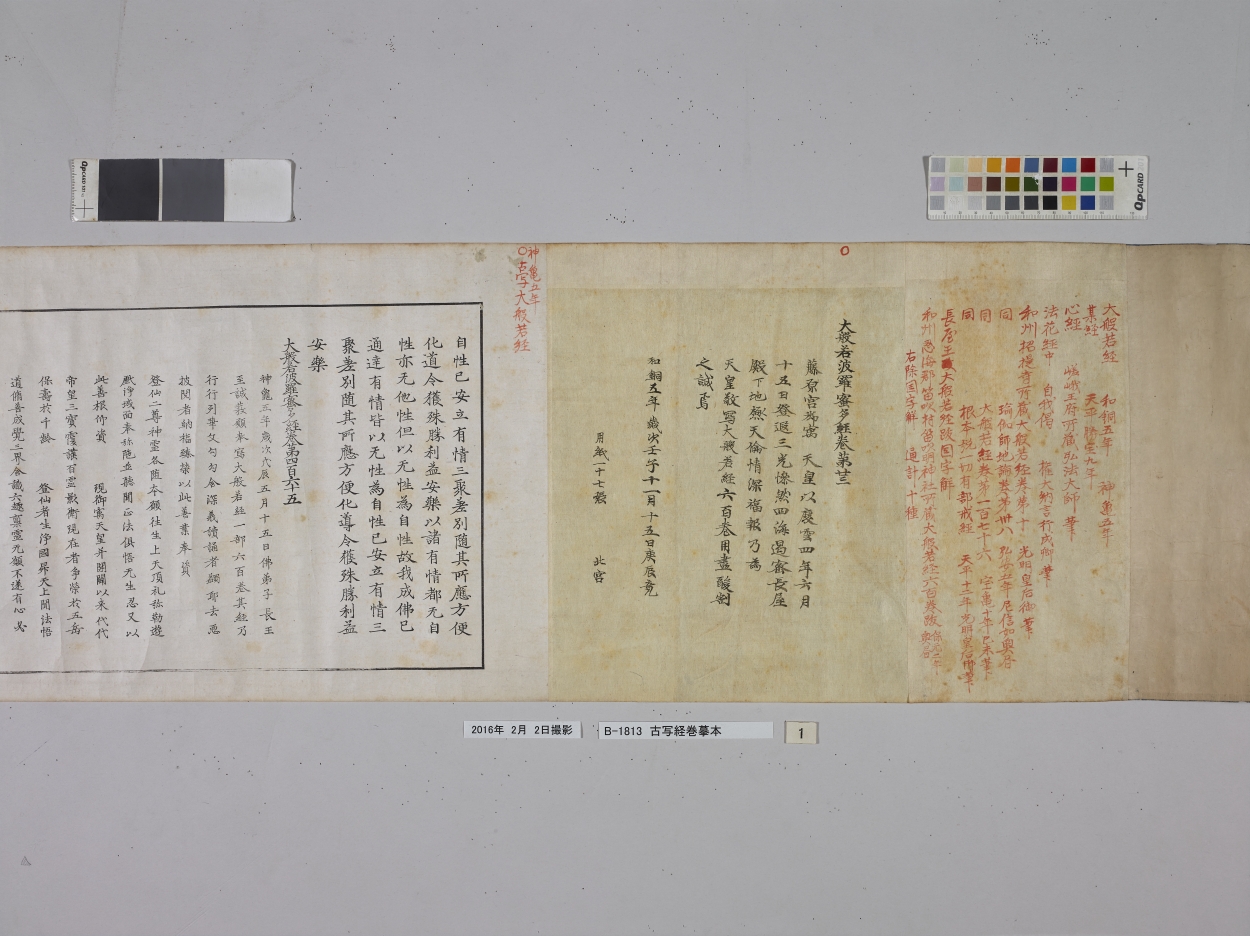 大般若経 和銅五年 神亀五年
某経 天平
心経 嵯峨王府所蔵弘法大師筆
法花経中 自代僧 権大納言行成卿筆
和州招提寺所蔵大般若経巻第十一 光明皇后御筆
同 瑜伽師地論巻第卅八 弘安
同 大般若経巻第一百七十六 宝亀十年己未筆
同 根本説一切有部戒経 天平十二年光明皇后御筆
長屋王大般若経跋国字解
和州 笛吹村笛吹明神社所蔵大般若経六百巻跋
右除国字解 通計十種
大般若波羅蜜多経巻第廿三
藤原宮御寓 天皇以慶雲四年六月
十五日登遐三光惨然四海遏密長屋
殿下地極天倫情深福報乃為
天皇敬寫大般若経六百巻用盡酸割
之誠焉
和銅五年歳次壬子十一月十五日庚辰竟
用紙一十七張 北宮
神亀五年
古字大般若経
自性已安立有情三聚差別随其所應方便
化道令獲殊勝利益安樂以諸有情都无自
性亦无他性但以无性為自性故我成佛已
通達有情皆以无性為自性已安立有情三
聚差別随其所應方便化導令獲殊勝利益
安樂
大般若波羅蜜多経巻第四百六十五
神亀五年歳次戊辰五月十五日佛弟子長王
至誠發願奉寫大般若経一部六百巻其経乃
行行列華文勾勾含深義讀誦者蠲邪去悪
披閲者納福臻榮以此善業奉資
登仙二尊神霊各随本願往生上天頂礼弥勒遊
戯浄域面奉弥陁並聴聞正法俱悟无生忍又以
此善根仰資 現御寓天皇并開闢以来代代
帝皇三寳覆護百霊影衛現在者争榮於五岳
保壽於千齡 登仙者生浄國昇天上聞法悟
道脩善成覺三界含識六趣稟霊无願不遂有心必
2016年 2月 2日撮影
B-1813 古写経巻摹本
1
QPCARD 101
QPCARD 201